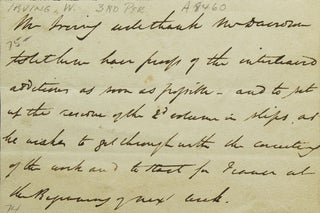 IRVING, W. 3RD PER. A8460
Mr Irving will thank Mr Davison
75-
to let him have proofs of the interlined
additions as soon as possible - and to set
up the residue of the 2d volume in slips, as
he wishes to get through with the correcting
of the work and to start for France at
the Beginning of next week.